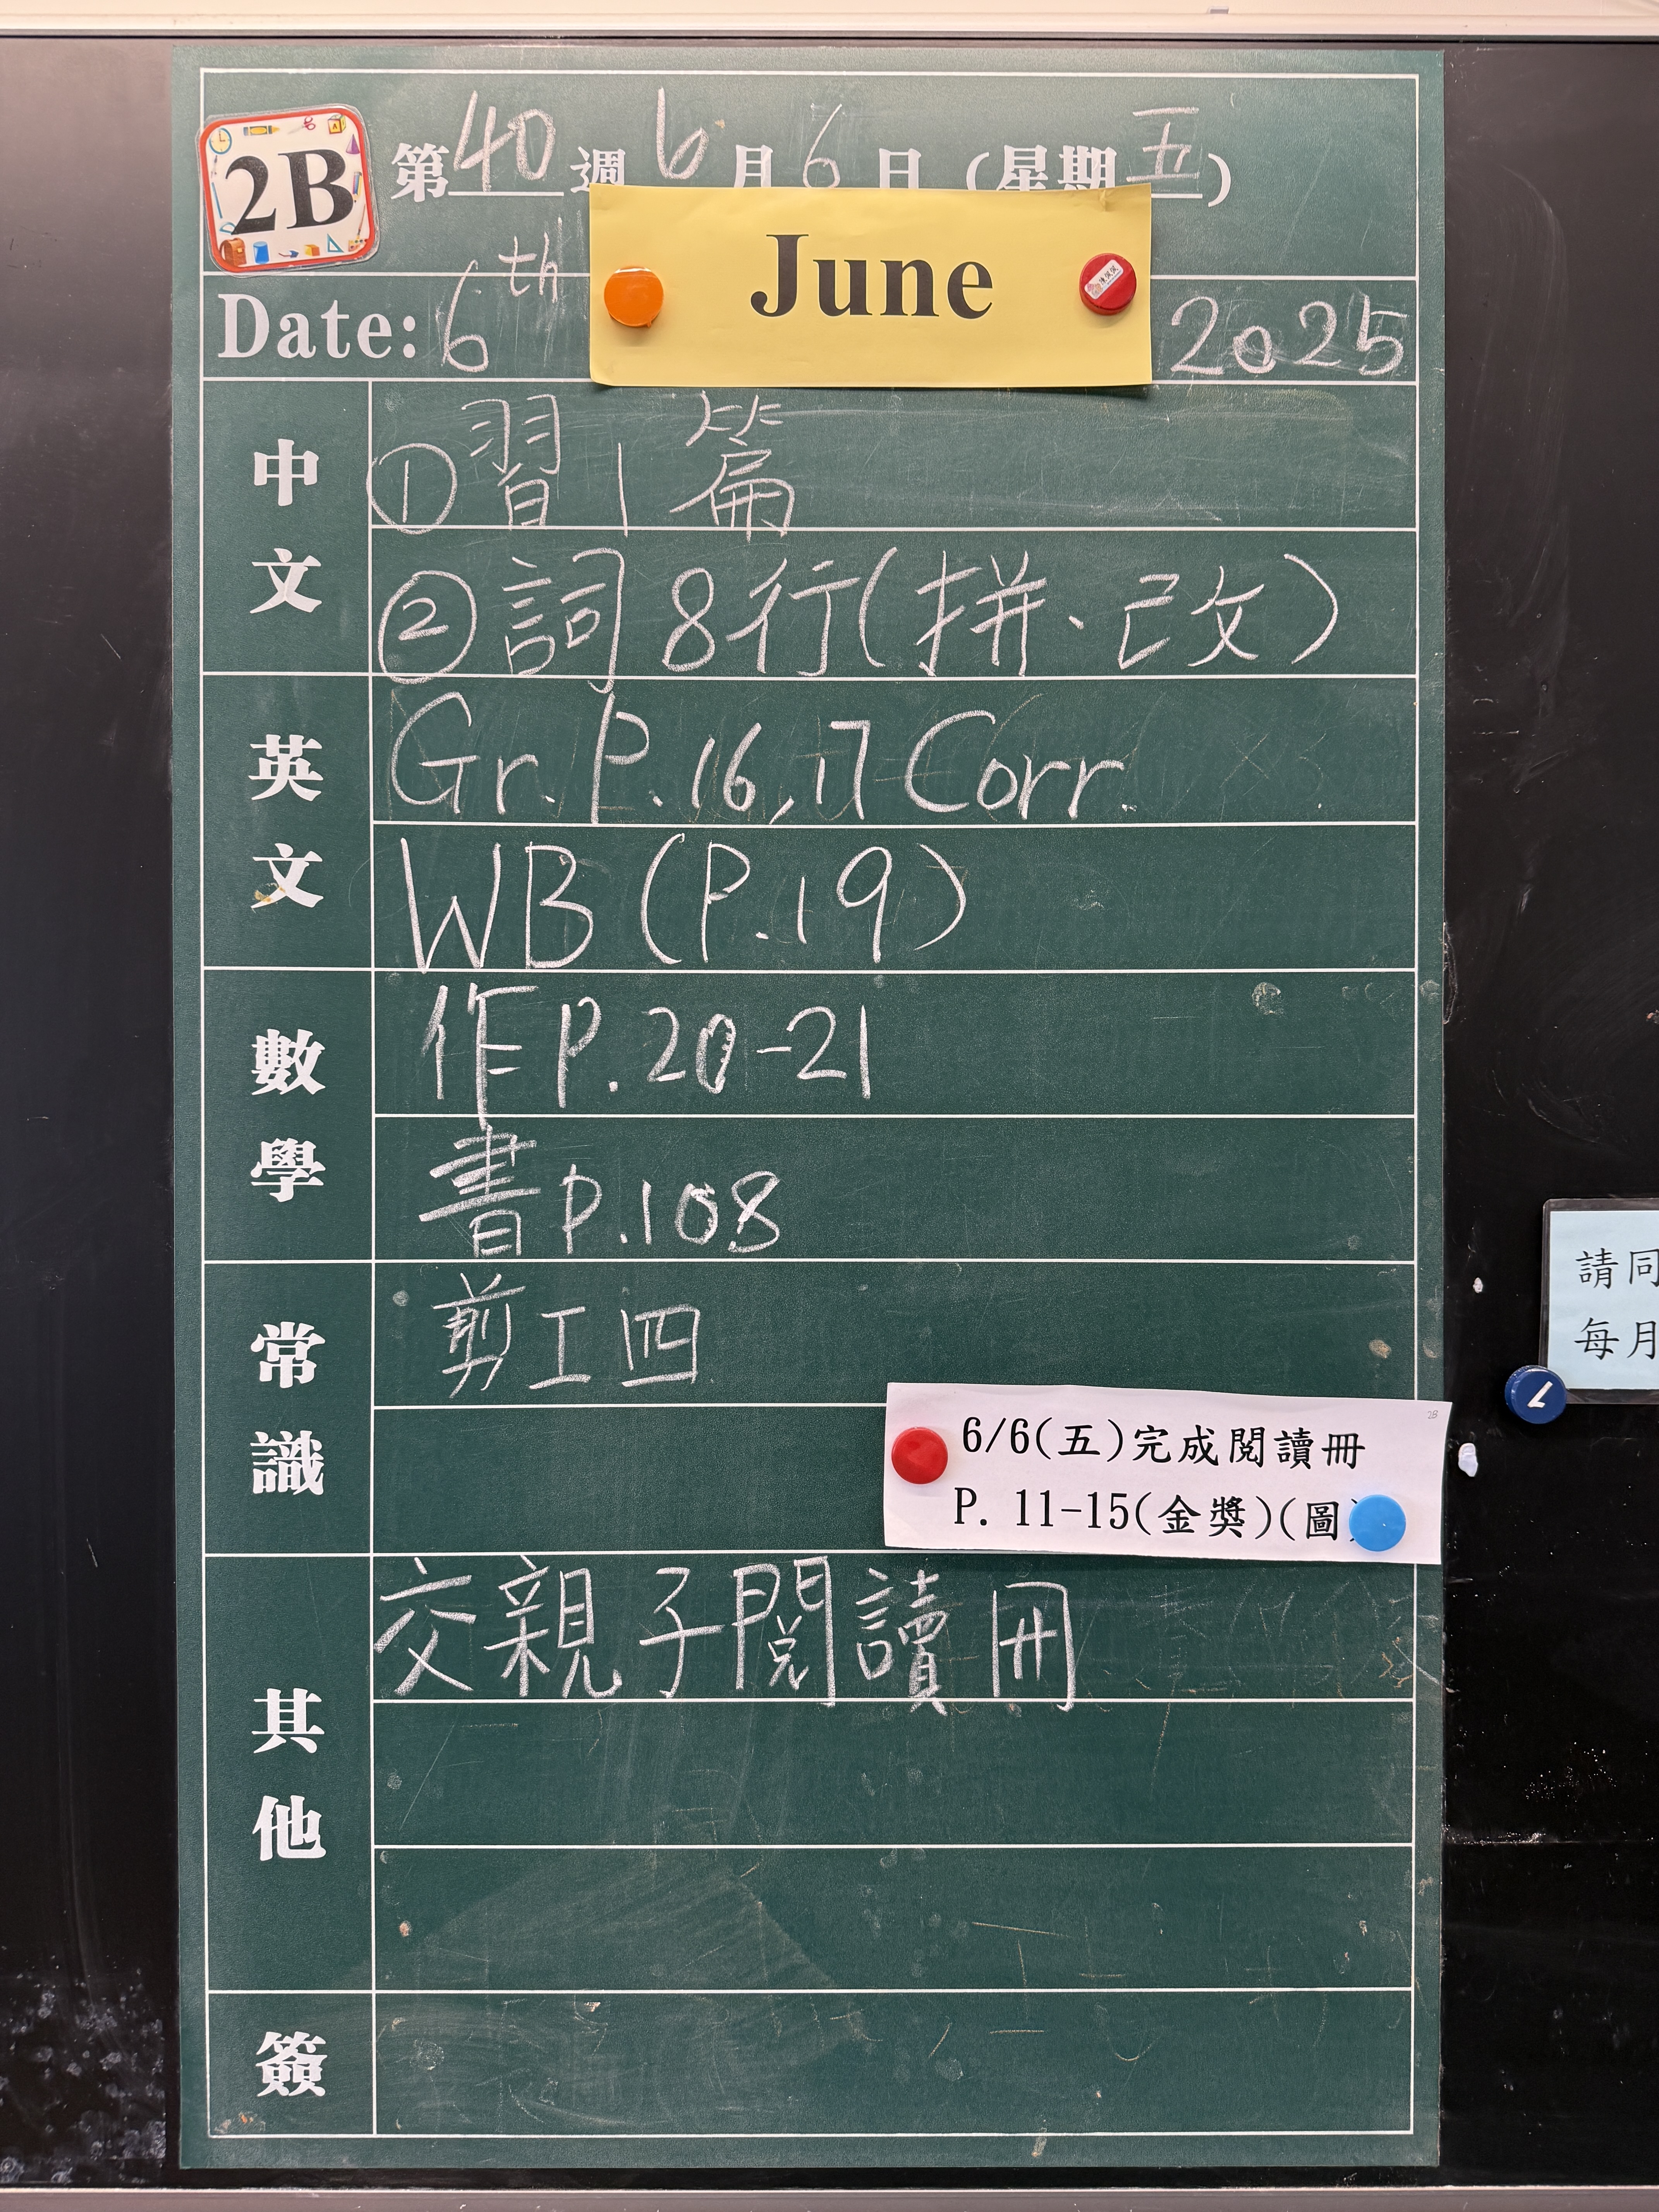 2B
第40週6月6日(星期五)
Date: 6th June 2025
中文
①習1篇
②詞8行(拼、已改)
英文
Gr. P.16,17 Corr.
WB (P.19)
數學
作P.20-21
書P.108
常識
剪工四
6/6(五)完成閱讀冊
P. 11-15(金獎)(圖
2B
其他
交親子閱讀冊
簽
請同
每月